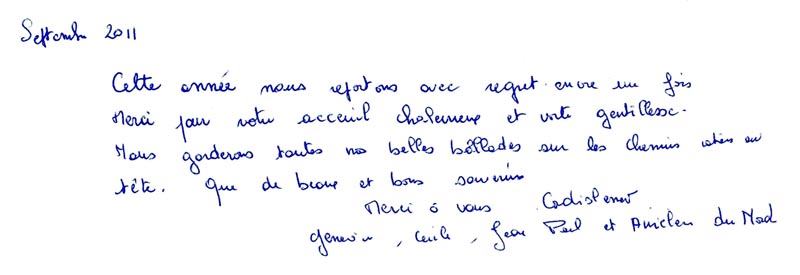 Septembre 2011
Cette année nous repartons avec regret encore une fois
Merci pour votre acceuil chaleureux et votre gentillesse.
Nous garderons toutes nos belles ballades sur les chemins en
tête. Que de beaux et bons souvenirs
Merci à vous Cordialement
Geneviève, Cécile, Jean Paul et Aurélien du Nord